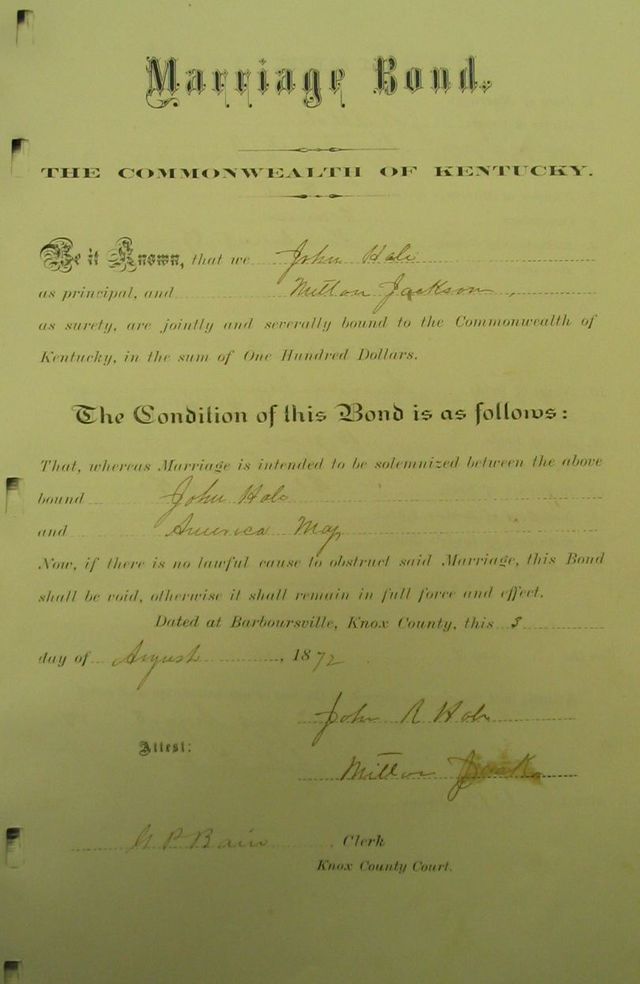 Marriage Bond.
THE COMMONWEALTH OF KENTUCKY.
Be it Known, that we John Hale
as principal, and Milton Jackson,
as surety, are jointly and severally bound to the Commonwealth of
Kentucky, in the sum of One Hundred Dollars.
The Condition of this Bond is as follows:
That, whereas Marriage is intended to be solemnized between the above
bound John Hale
and America May
Now, if there is no lawful cause to obstruct said Marriage, this Bond
shall be void, otherwise it shall remain in full force and effect.
Dated at Barboursville, Knox County, this 3
day of August, 1872.
John R Hale
Attest:
Milton
G P Bain, Clerk
Knox County Court.